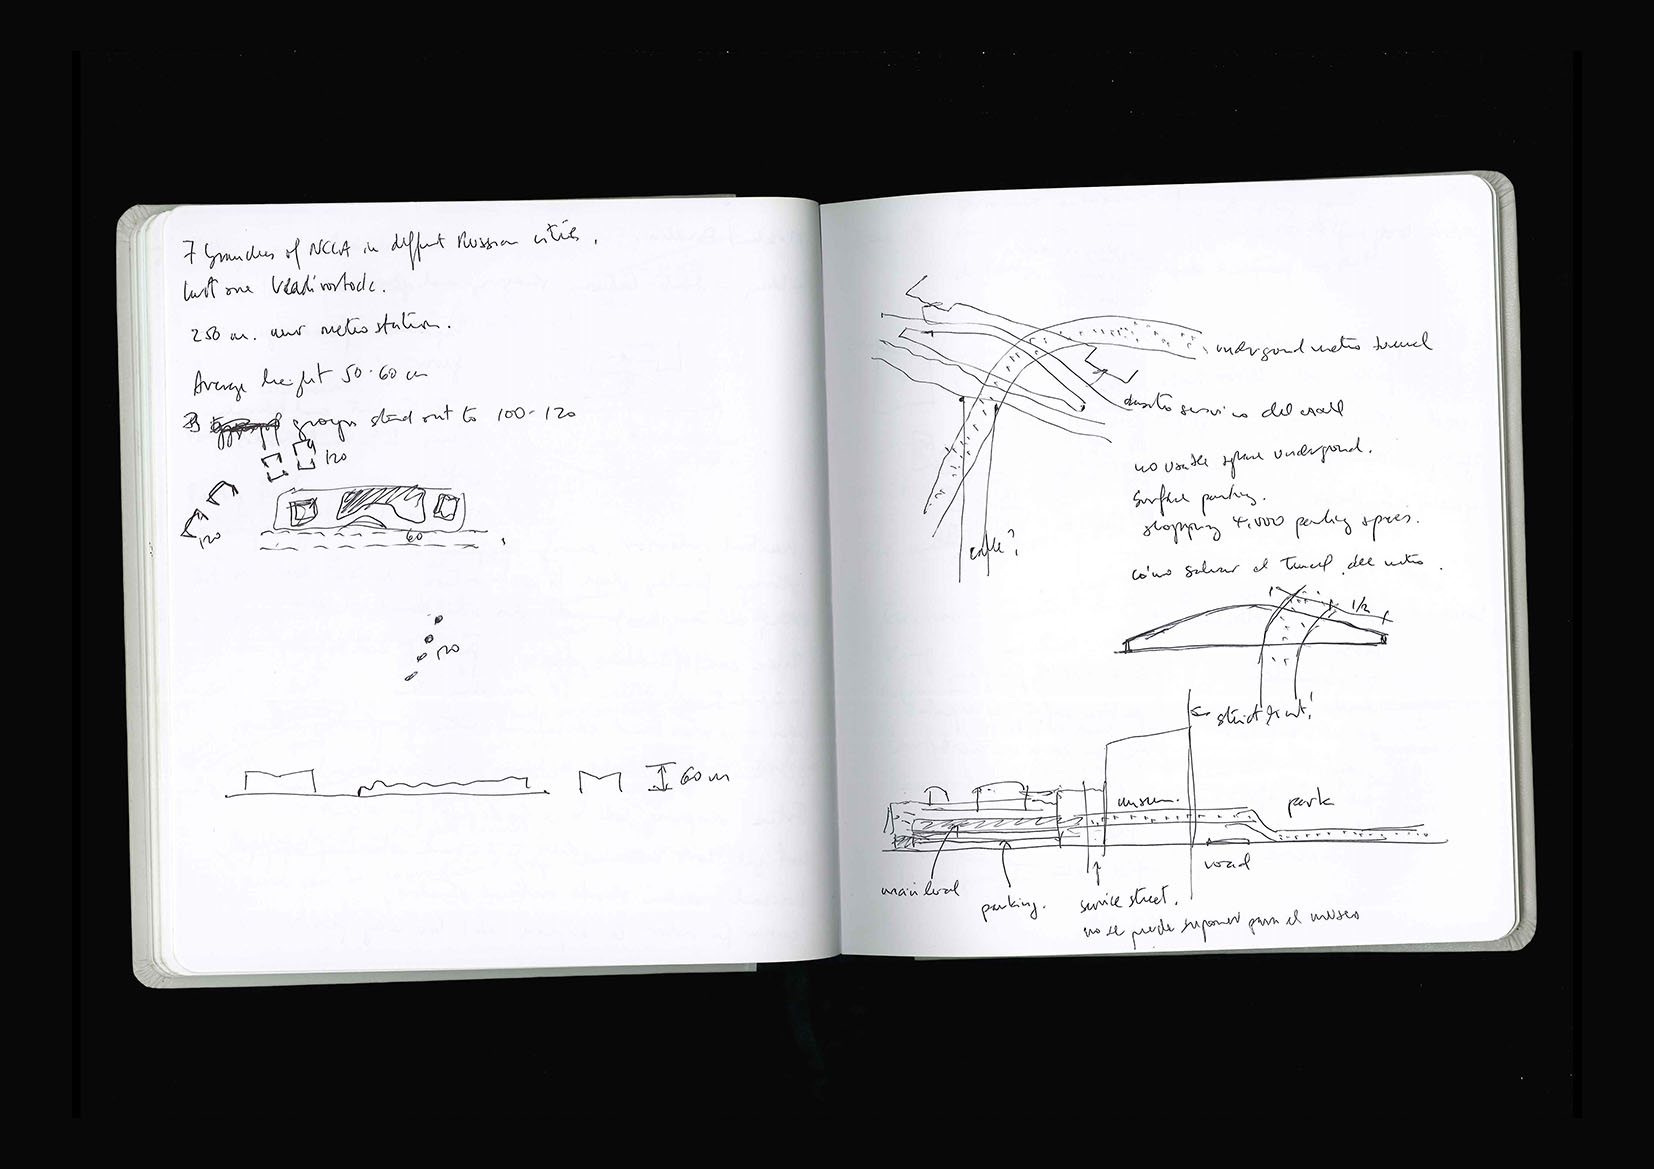 7 branches of NCCA in different Russian cities.
last one Vladivostock.
250 m. new metro station.
Average height 50-60 m
groups stand out to 100-120
120
120
60
120
60 m
underground metro tunnel
servicio del mall
no usable space underground.
Surface parking.
shopping 4,000 parking spaces.
calle?
cómo salvar el tunel del metro.
1/2
strict limit!
museum.
park
road
main level
parking.
service street.
no se puede suponer para el museo